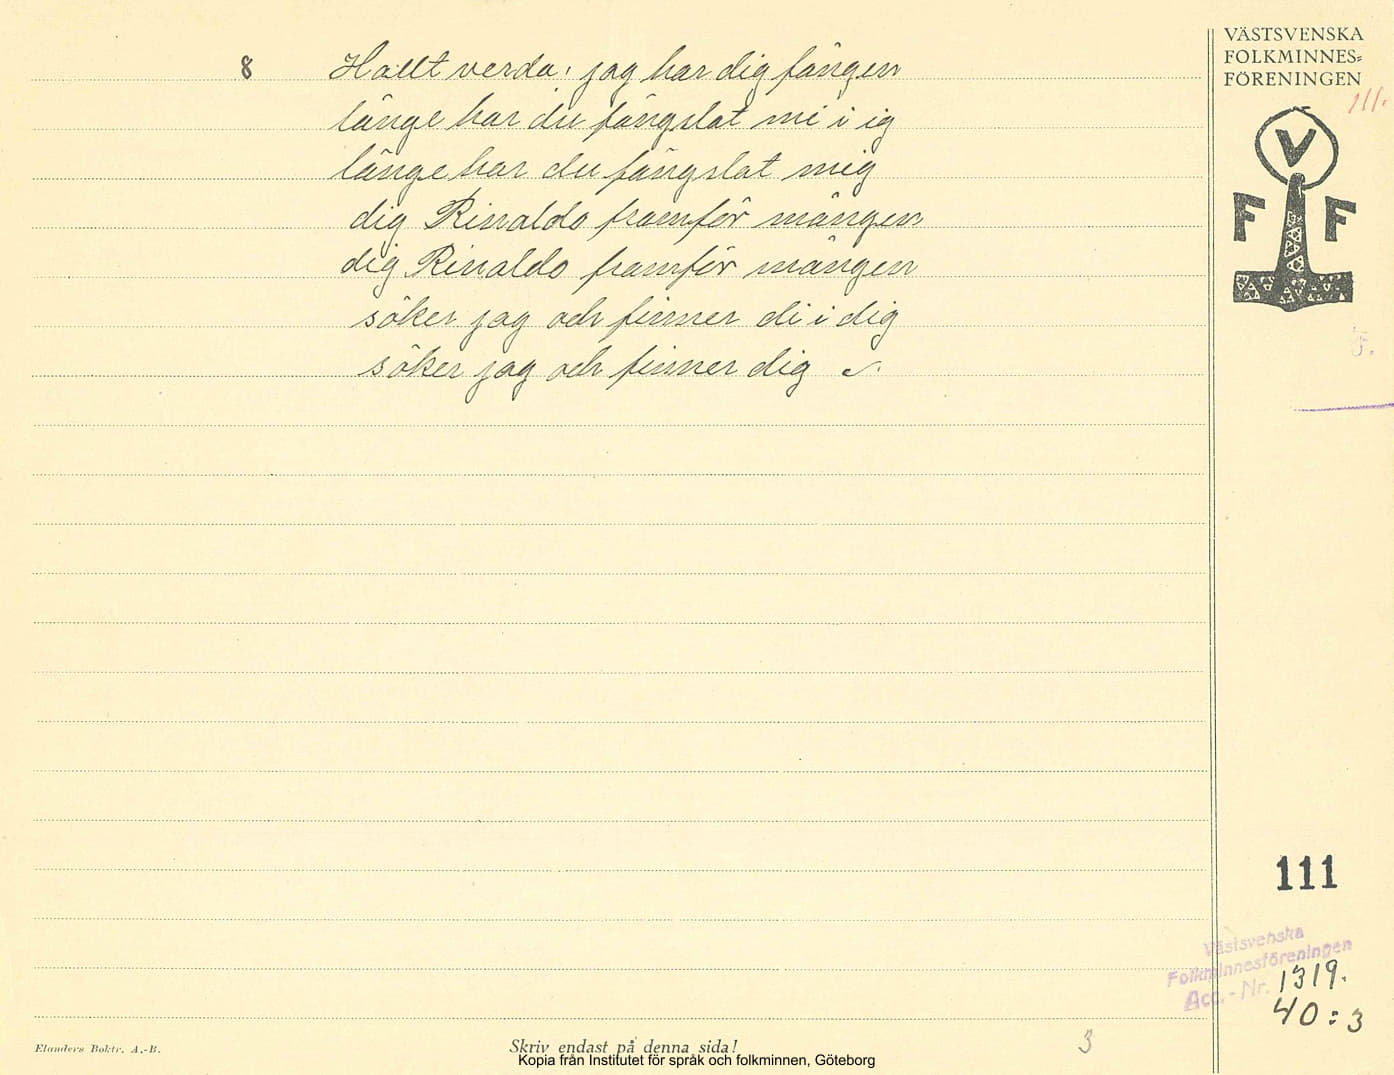 VÄSTSVENSKA
FOLKMINNES=
FÖRENINGEN
111.
V
F F
8 Hallt verda! jag har dig fången
länge har du fängslat mi i ig
länge har du fängslat mig
dig Rinaldo framför mången
dig Rinaldo framför mången
söker jag och finner di i dig
söker jag och finner dig
F.
111
Västsvenska
Folkminnesföreningen
Acc.-Nr. 1319.
40:3
3
Elanders Boktr. A.-B.
Skriv endast på denna sida!
Kopia från Institutet för språk och folkminnen, Göteborg